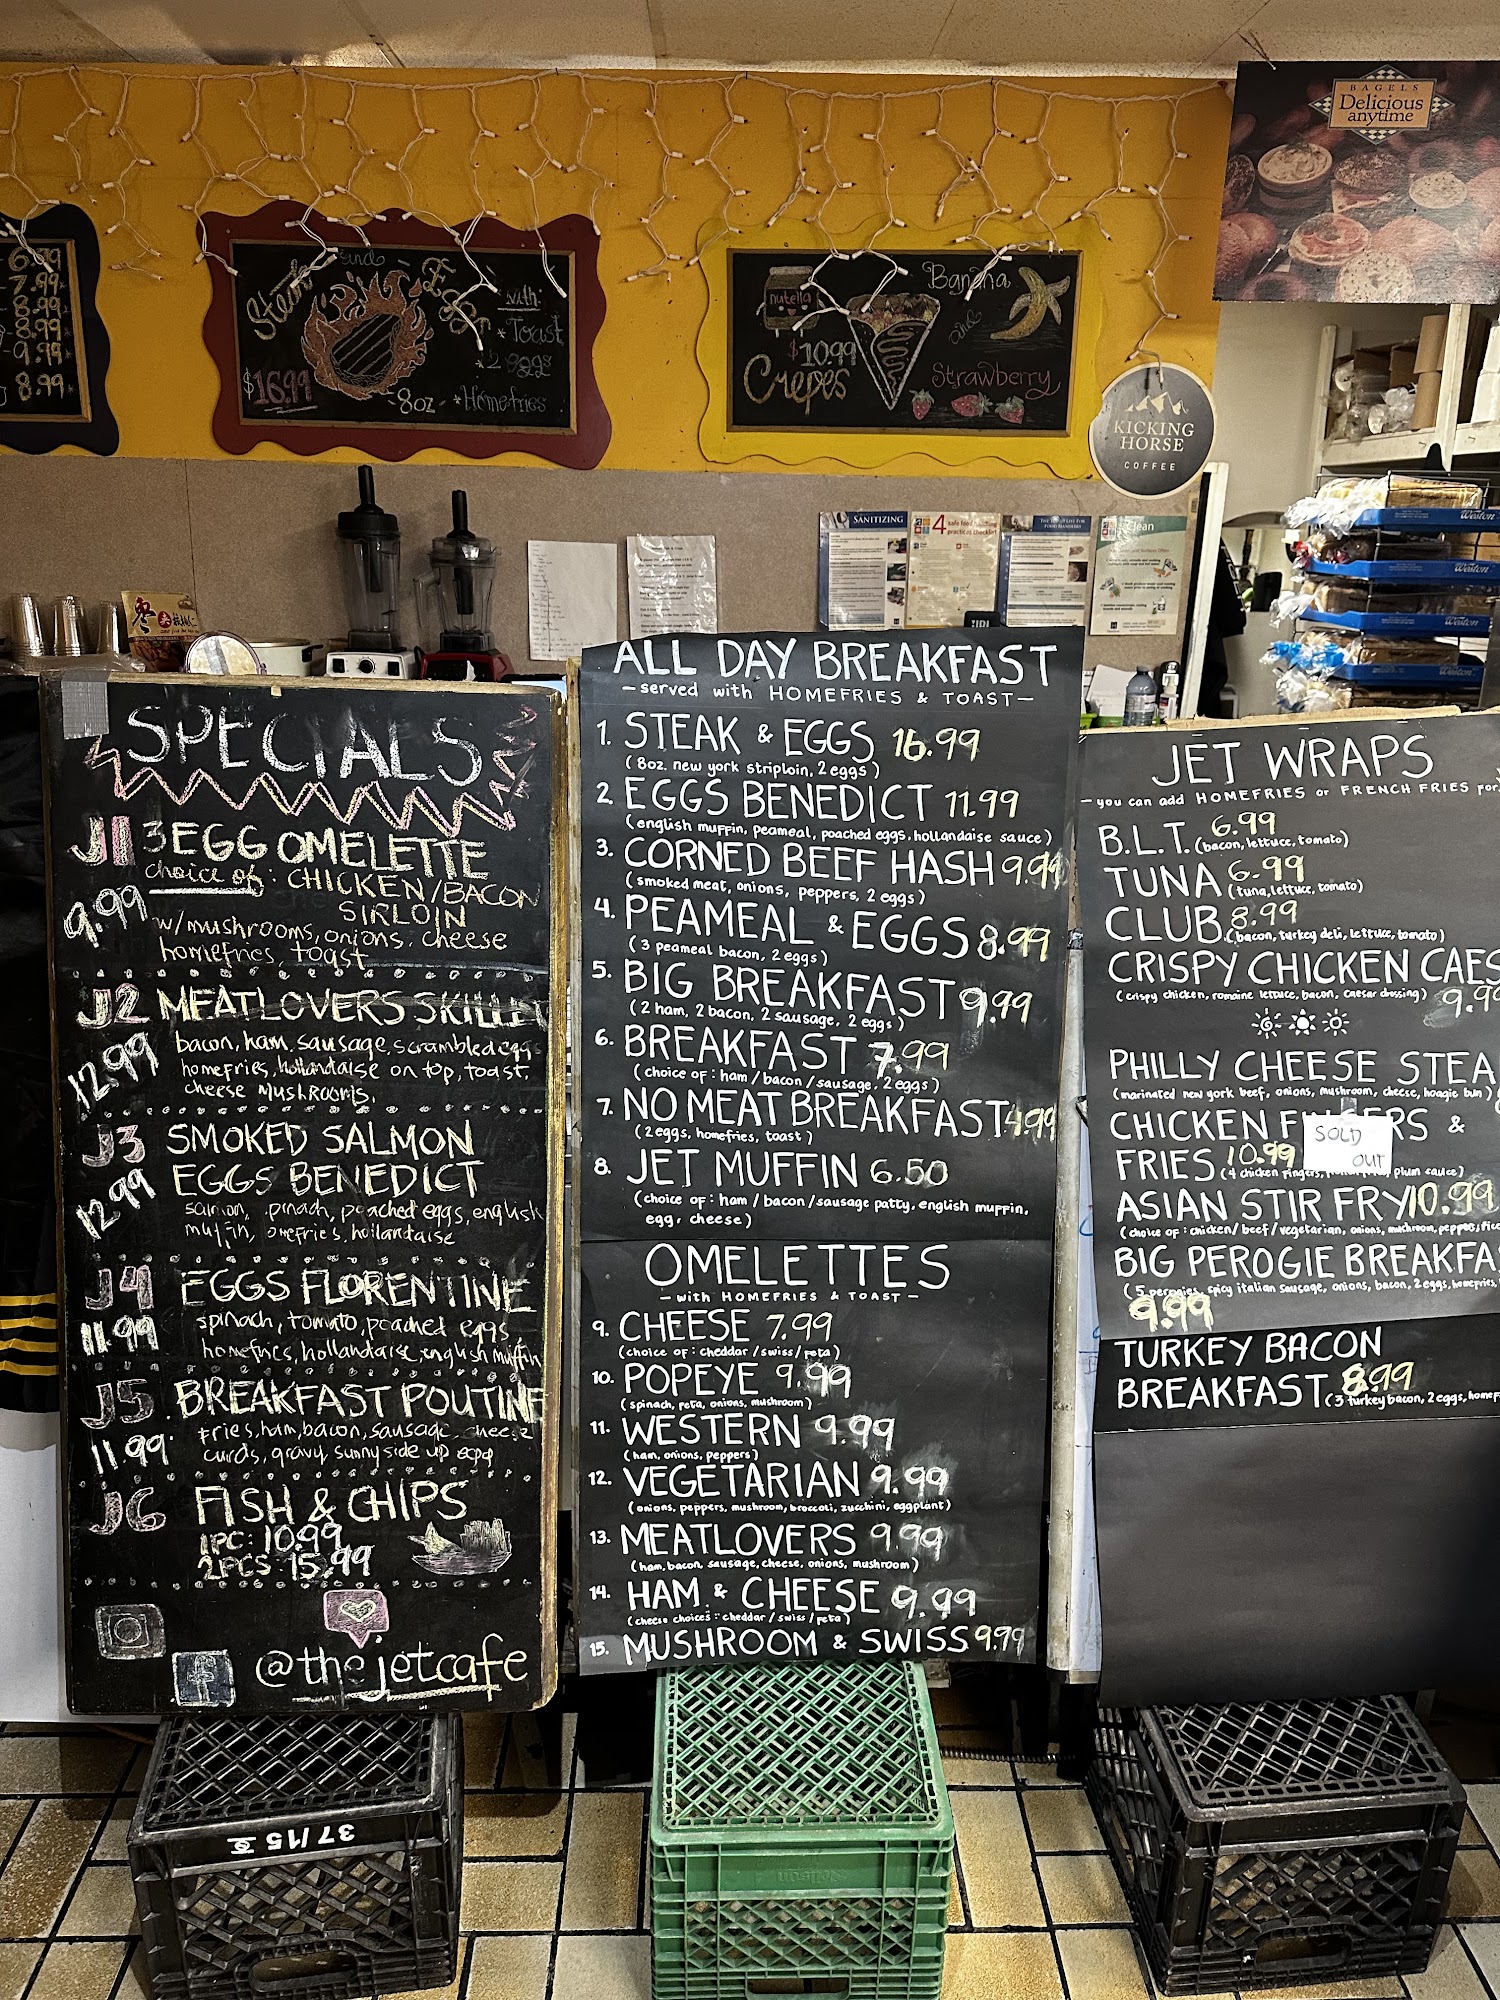 6.99
7.99
8.99
8.99
9.99
8.99
Steak and Eggs
with:
*Toast
*2 eggs
$16.99
8oz *Homefries
nutella
Banana
and
$10.99
Crepes
Strawberry
BAGELS
Delicious
anytime
KICKING
HORSE
COFFEE
SANITIZING
4 safe food
practices checklist
FOOD HANDLERS
Clean
Weston
Weston
Weston
Weston
SPECIALS
J1 3 EGG OMELETTE
choice of: CHICKEN/BACON
SIRLOIN
9.99
w/mushrooms, onions, cheese
homefries, toast
J2 MEATLOVERS SKILLET
12.99
bacon, ham, sausage, scrambled eggs
homefries, hollandaise on top, toast,
cheese mushrooms.
J3 SMOKED SALMON
EGGS BENEDICT
12.99
poached eggs, english
hollandaise
J4 EGGS FLORENTINE
11.99
spinach, tomato, poached eggs,
homefries, hollandaise, english muffin
J5 BREAKFAST POUTINE
11.99
fries, ham, bacon, sausage, cheese
curds, gravy, sunny side up egg
J6 FISH & CHIPS
1PC: 10.99
2PCS: 15.99
@thejetcafe
ALL DAY BREAKFAST
- served with HOMEFRIES & TOAST -
1. STEAK & EGGS 16.99
(8oz. new york striploin, 2 eggs)
2. EGGS BENEDICT 11.99
(english muffin, peameal, poached eggs, hollandaise sauce)
3. CORNED BEEF HASH 9.99
(smoked meat, onions, peppers, 2 eggs)
4. PEAMEAL & EGGS 8.99
(3 peameal bacon, 2 eggs)
5. BIG BREAKFAST 9.99
(2 ham, 2 bacon, 2 sausage, 2 eggs)
6. BREAKFAST 7.99
(choice of: ham / bacon / sausage, 2 eggs)
7. NO MEAT BREAKFAST 4.99
(2 eggs, homefries, toast)
8. JET MUFFIN 6.50
(choice of: ham / bacon / sausage patty, english muffin,
egg, cheese)
OMELETTES
- with HOMEFRIES & TOAST -
9. CHEESE 7.99
(choice of: cheddar / swiss / feta)
10. POPEYE 9.99
(spinach, feta, onions, mushroom)
11. WESTERN 9.99
(ham, onions, peppers)
12. VEGETARIAN 9.99
(onions, peppers, mushroom, broccoli, zucchini, eggplant)
13. MEATLOVERS 9.99
(ham, bacon, sausage, cheese, onions, mushroom)
14. HAM & CHEESE 9.99
(cheese choices: cheddar / swiss / feta)
15. MUSHROOM & SWISS 9.99
JET WRAPS
- you can add HOMEFRIES or FRENCH FRIES for
B.L.T. 6.99
(bacon, lettuce, tomato)
TUNA 6.99
(tuna, lettuce, tomato)
CLUB 8.99
(bacon, turkey deli, lettuce, tomato)
CRISPY CHICKEN CAES
(crispy chicken, romaine lettuce, bacon, caesar dressing) 9.99
PHILLY CHEESE STEA
(marinated new york beef, onions, mushroom, cheese, hoagie bun)
CHICKEN FINGERS &
FRIES 10.99
(4 chicken fingers, plum sauce)
SOLD
OUT
ASIAN STIR FRY 10.99
(choice of: chicken / beef / vegetarian, onions, mushroom, peppers, rice
BIG PEROGIE BREAKFA
(5 perogies, spicy italian sausage, onions, bacon, 2 eggs, homefries,
9.99
TURKEY BACON
BREAKFAST 8.99
(3 turkey bacon, 2 eggs, homef
37/15